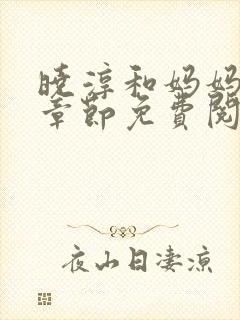 晓淳和妈妈
章节免费阅
夜山日凄凉